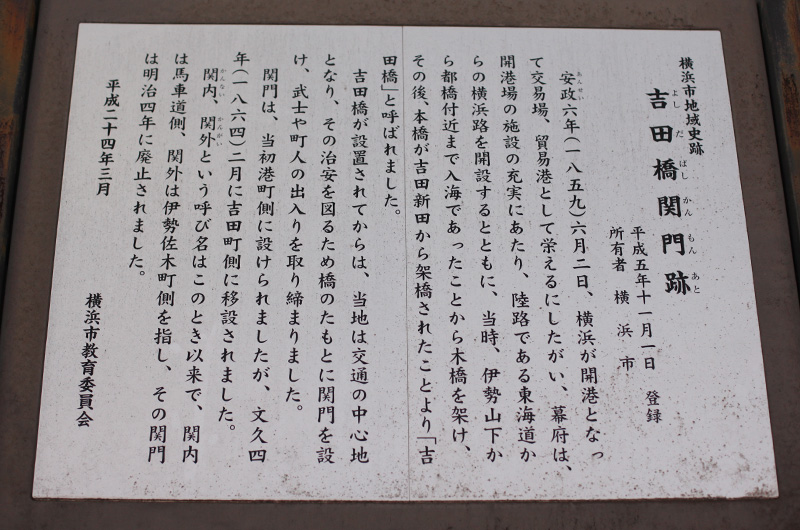 横浜市地域史跡
吉田橋関門跡
よしだばしかんもんあと
平成五年十一月一日　登録
所有者　横浜市
安政六年(一八五九)六月二日、横浜が開港となっ
あんせい
て交易場、貿易港として栄えるにしたがい、幕府は、
開港場の施設の充実にあたり、陸路である東海道か
らの横浜路を開設するとともに、当時、伊勢山下か
ら都橋付近まで入海であったことから木橋を架け、
その後、本橋が吉田新田から架橋されたことより「吉
田橋」と呼ばれました。
吉田橋が設置されてからは、当地は交通の中心地
となり、その治安を図るため橋のたもとに関門を設
け、武士や町人の出入りを取り締まりました。
関門は、当初港町側に設けられましたが、文久四
年(一八六四)二月に吉田町側に移設されました。
関内、関外という呼び名はこのとき以来で、関内
かんない　かんがい
は馬車道側、関外は伊勢佐木町側を指し、その関門
は明治四年に廃止されました。
平成二十四年三月
横浜市教育委員会